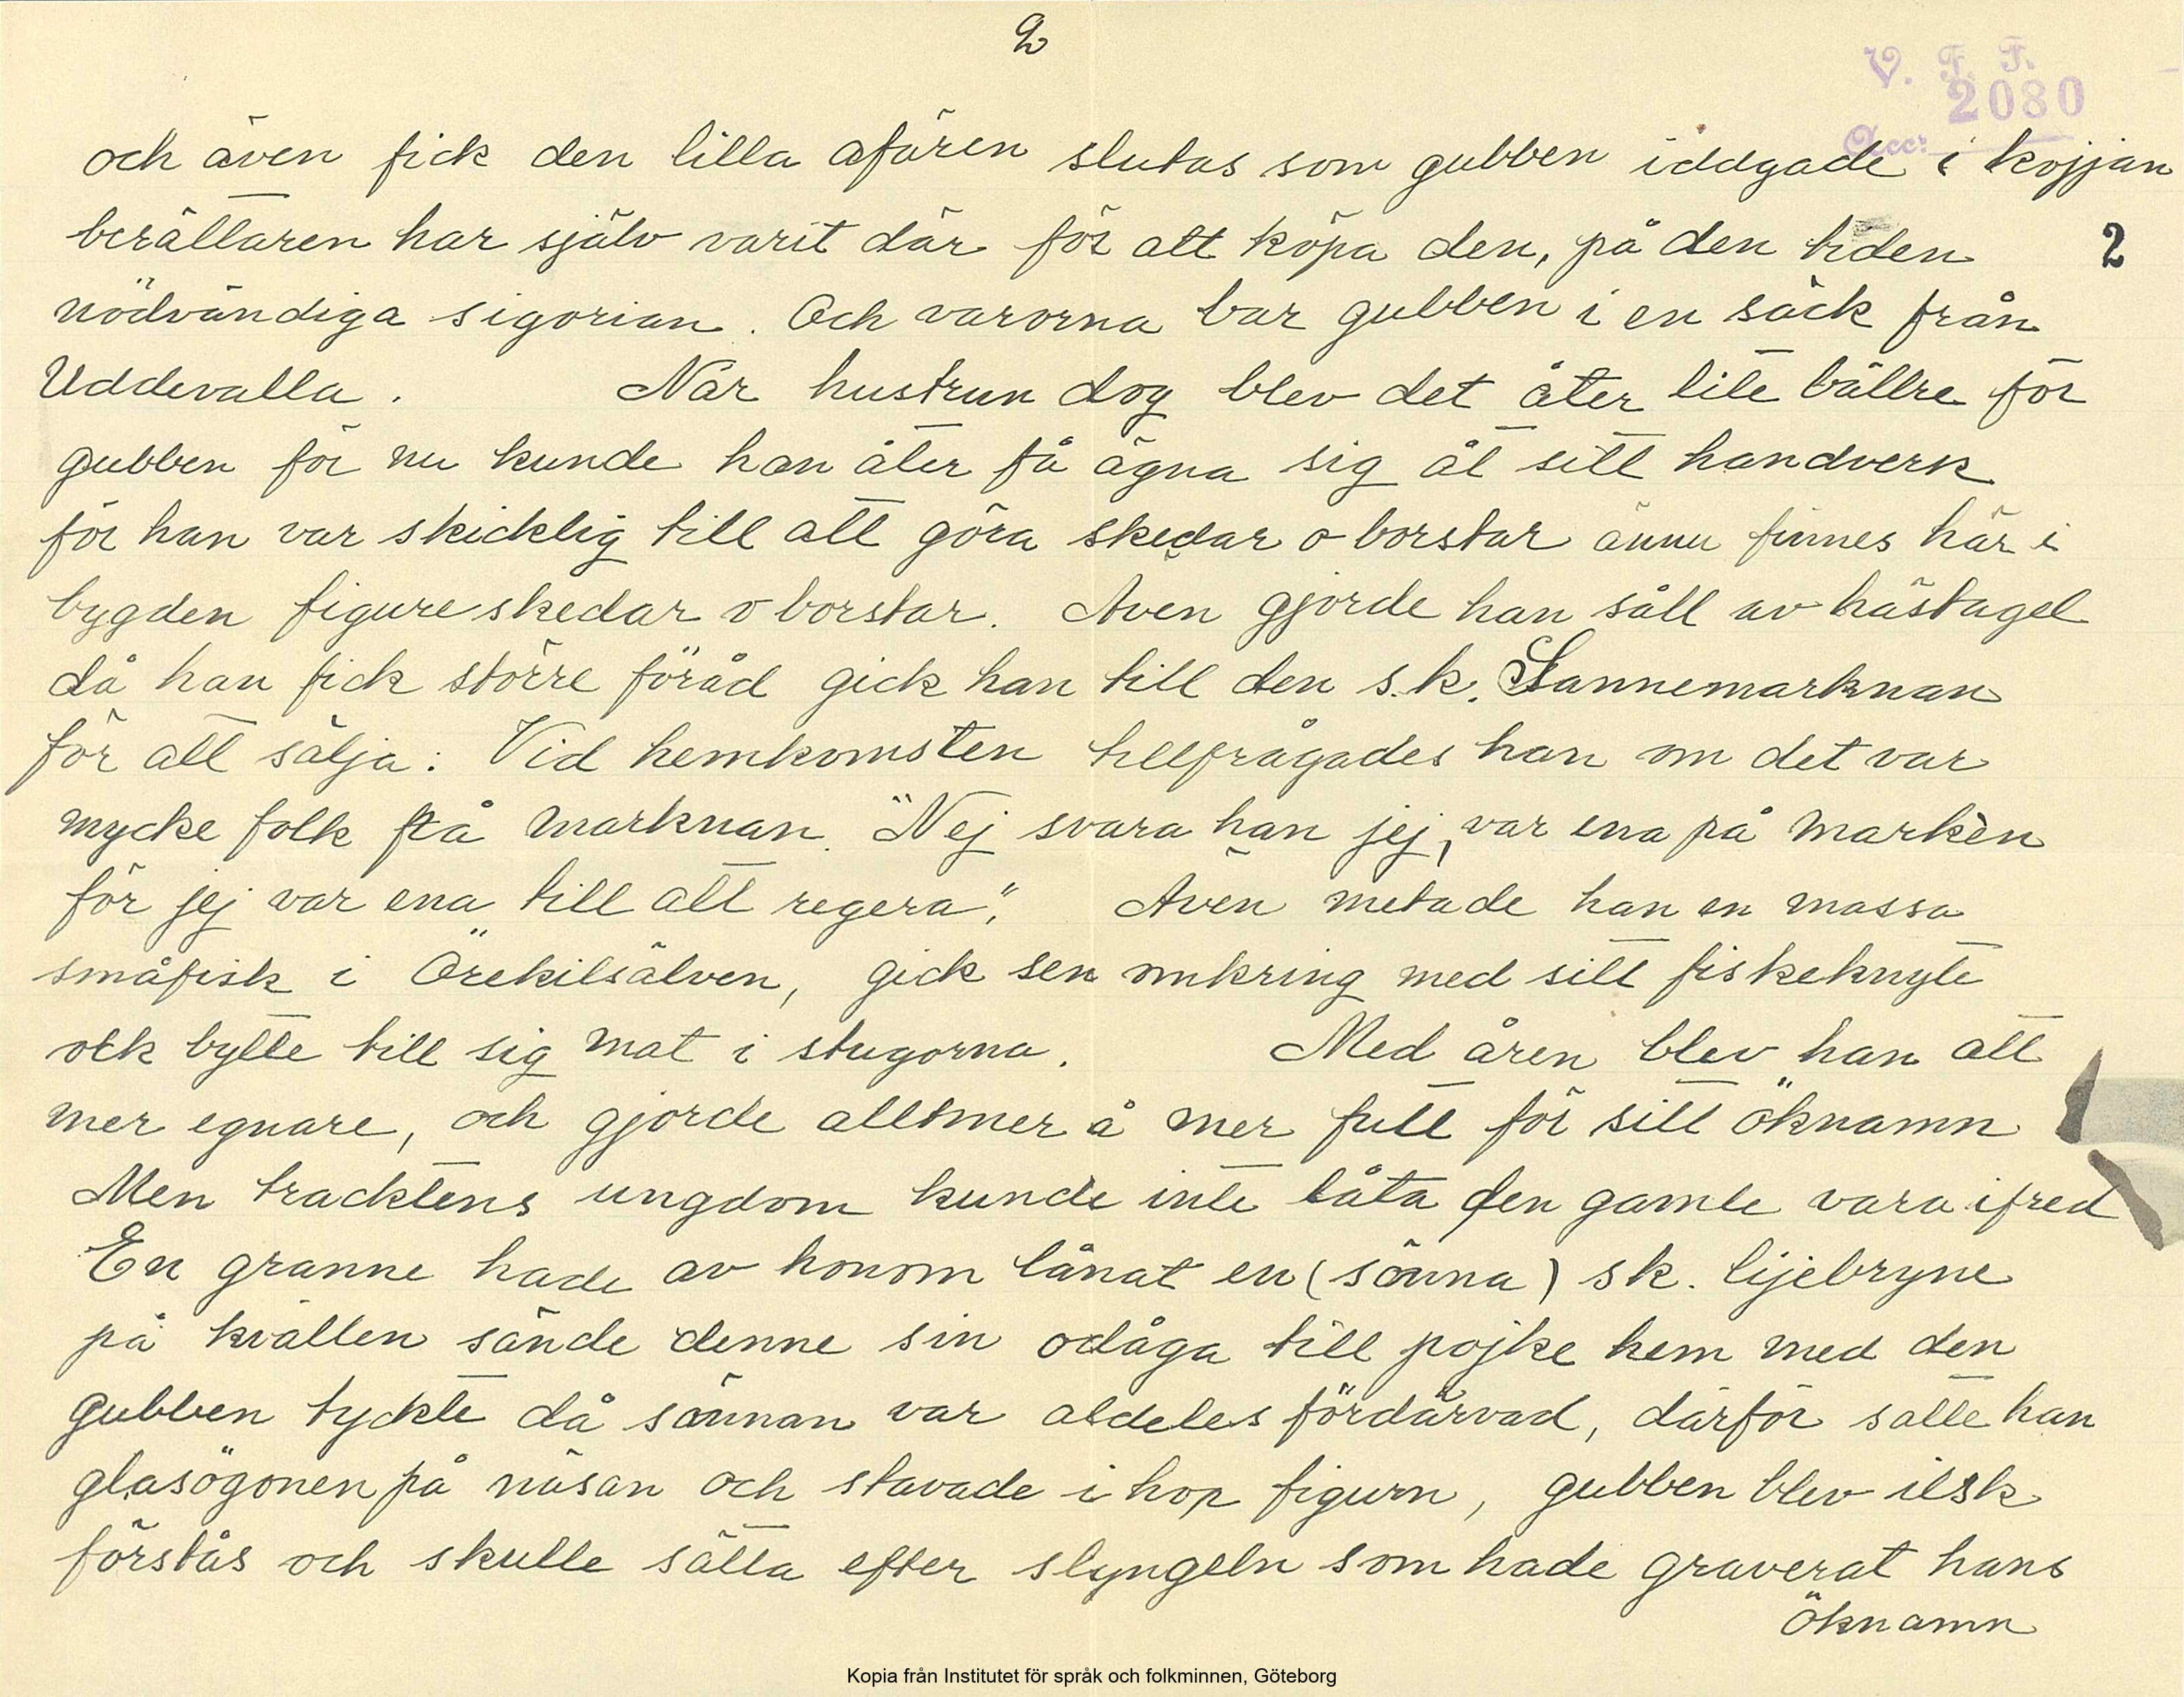 2
V. F. F.
2080
Acc:
och även fick den lilla afären slutas som gubben iddgade i kojjan
berättaren har själv varit där för att köpa den, på den tiden
2
nödvändiga sigorian. Och varorna bar gubben i en säck från
Uddevalla. När hustrun dog blev det åter lite bättre för
gubben för nu kunde han åter få ägna sig åt sitt handverk
för han var skicklig till att göra skedar o borstar ännu finnes här i
bygden figureskedar o borstar. Även gjorde han såll av hästagel
då han fick större föråd gick han till den s.k. Sannemarknan
för att sälja: Vid hemkomsten tillfrågades han om det var
mycke folk på marknan. "Nej svara han jej, var ena på markèn
för jej var ena till att regera". Även metade han en massa
småfisk i Örekilsälven, gick sen omkring med sitt fiskeknyte
ock bytte till sig mat i stugorna. Med åren blev han allt
mer egnare, och gjorde alltmer å mer fult för sitt öknamn
Men tracktens ungdom kunde inte låta den gamle vara ifred
En granne hade av honom lånat en (sönna) sk. lijebryne
på kvällen sände denne sin odåga till pojke hem med den
gubben tyckte då sönnan var aldeles fördärvad, därför satte han
glasögonen på näsan och stavade i hop figurn, gubben blev ilsk
förstås och skulle sätta efter slyngeln som hade graverat hans
öknamn
Kopia från Institutet för språk och folkminnen, Göteborg